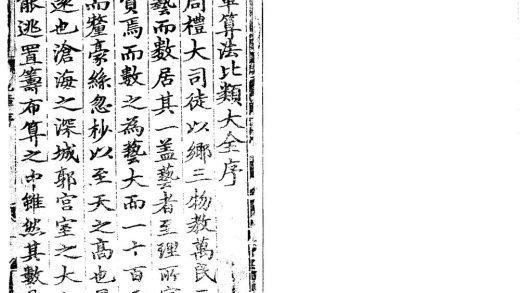 章算法比類大全序
周禮大司徒以鄉三物教萬民
藝而數居其一蓋藝者至理所
焉而數之為藝大而一十百
而釐豪絲忽杪以至天之高也
遠也滄海之深城郭宮室之大
能逃置籌布算之中雖然其數